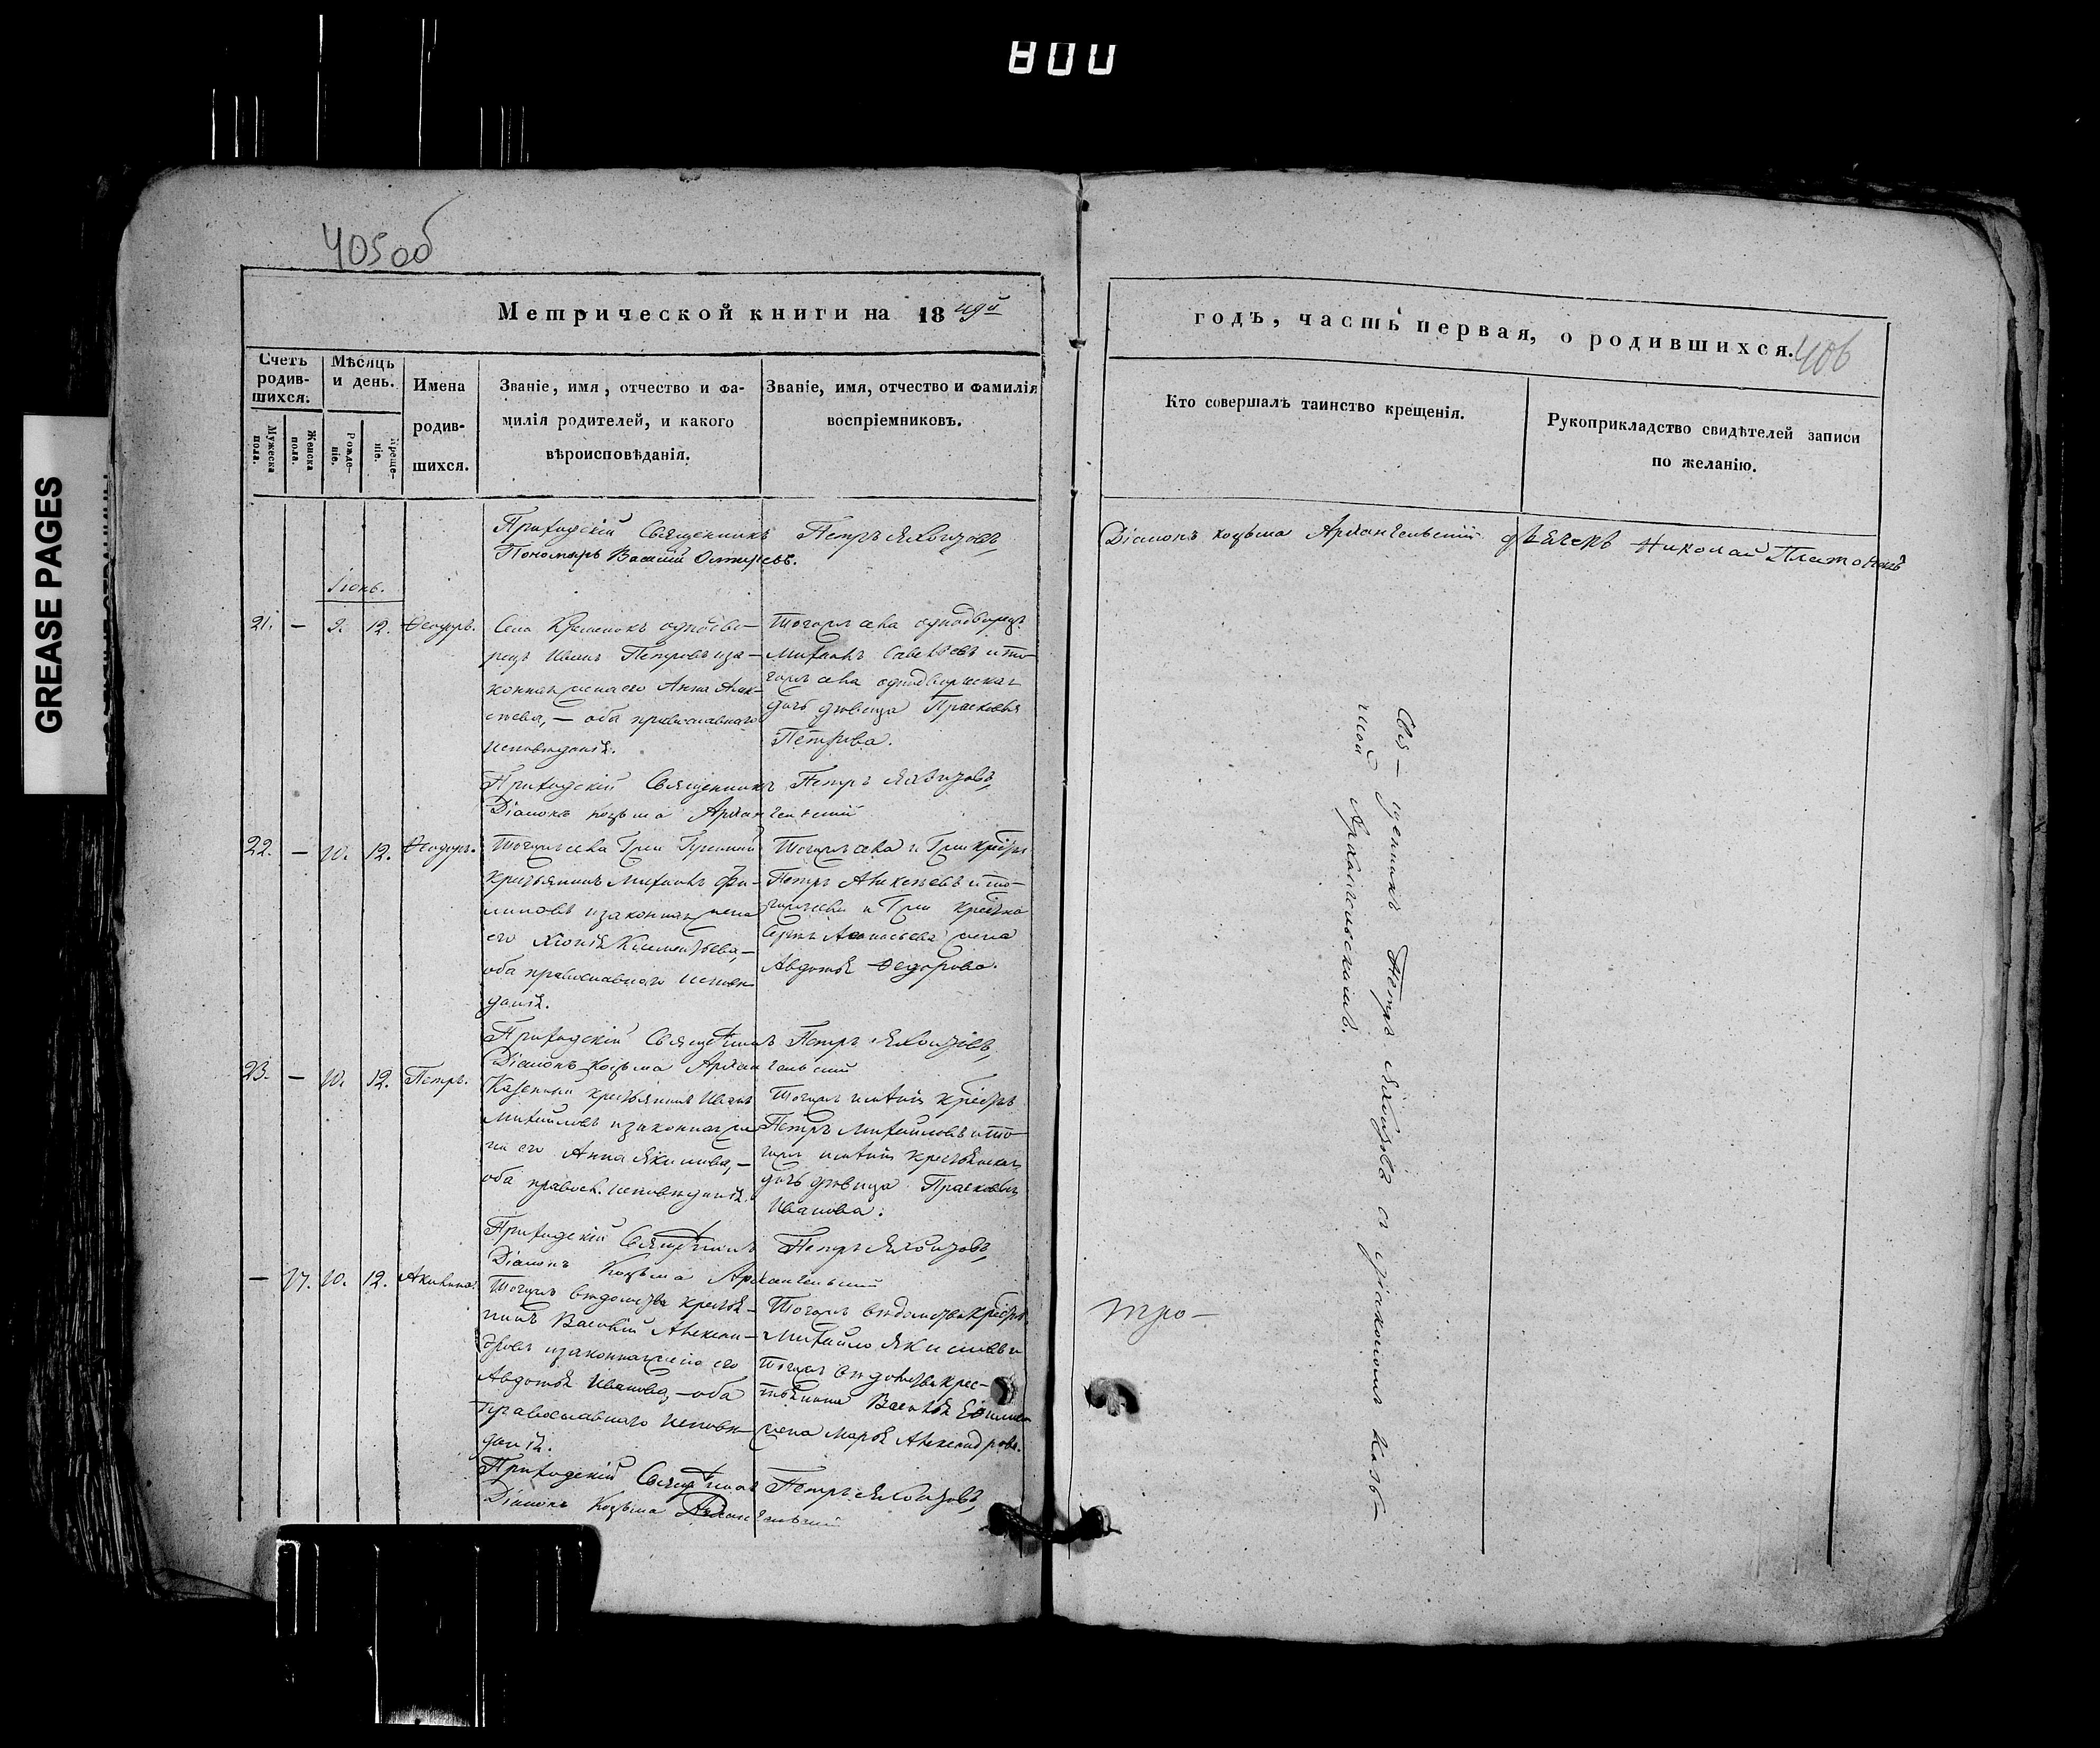 800
GREASE PAGES
405об
406
Метрической книги на 18 49й
годъ, часть первая, о родившихся.
Счетъ родив-шихся.
Мужеска пола.
Женска пола.
Мѣсяцъ и день.
Рожде-ніе.
Креще-ніе.
Имена
родив-
шихся.
Званіе, имя, отчество и фа-
милія родителей, и какого
вѣроисповѣданія.
Званіе, имя, отчество и фамилія
воспріемниковъ.
Кто совершалъ таинство крещенія.
Рукоприкладство свидѣтелей записи
по желанію.
Приходскій Священникъ Петръ
Пономарь Василій
Діаконъ Козьма Архангельскій дьячекъ Николай Платоновъ
Іюнь.
21. — 2. 12. Ѳеодоръ.
Села однодво-
рецъ Иванъ Петровъ и за-
конная жена его Анна Алек-
сѣева, — оба православнаго
исповѣданія.
Тогожъ села однодворецъ
Михаилъ Савельевъ и то-
гожъ села однодворческая
дочь дѣвица Прасковья
Петрова.
Приходскій Священникъ Петръ
Діаконъ Козьма Архангельскій
22. — 10. 12. Ѳеодоръ.
Тогожъ села
крестьянинъ Михаилъ Фи-
липовъ и законная жена
его Хіонія Климентьева, —
оба православнаго исповѣ
данія.
Тогожъ села
Петръ Алексѣевъ и то-
гожъ села
жена
Авдотья Ѳедорова.
Приходскій Священникъ Петръ
Діаконъ Козьма Архангельскій
23. — 10. 12. Петръ.
Казенный крестьянинъ Иванъ
Михайловъ и законная же
на его Анна Якимова, —
оба правосл. исповѣданія.
Тогожъ
Петръ Михайловъ и то-
гожъ крестьянская
дочь дѣвица Прасковья
Иванова.
Приходскій Священникъ Петръ
Діаконъ Козьма Архангельскій
— 17. 10. 12. Акилина.
Тогожъ вѣдомства крестья-
нинъ Василій Алексан-
дровъ и законная жена его
Авдотья Иванова, — оба
православнаго исповѣ-
данія.
Тогожъ вѣдомства
Михайло Якимовъ и
тогожъ вѣдомства крес-
тьянина Василья
жена Марья Александрова.
Приходскій Священникъ Петръ
Діаконъ Козьма Архангельскій
Свя- щенникъ Петръ съ діакономъ Козь-
мой Архангельскимъ.
тро-